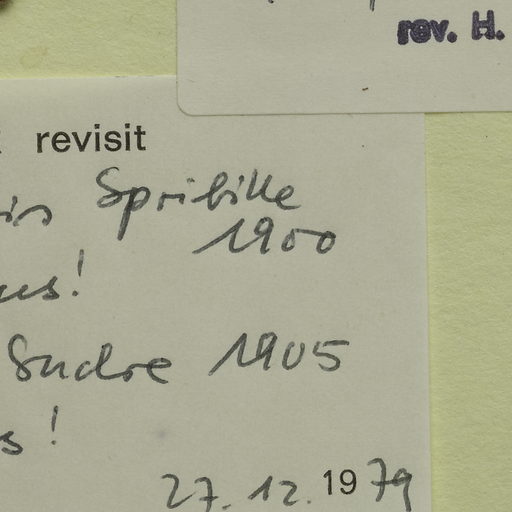 rev. H.
revisit
Spribille
1900
us!
Sudre 1905
s!
27. 12. 1979